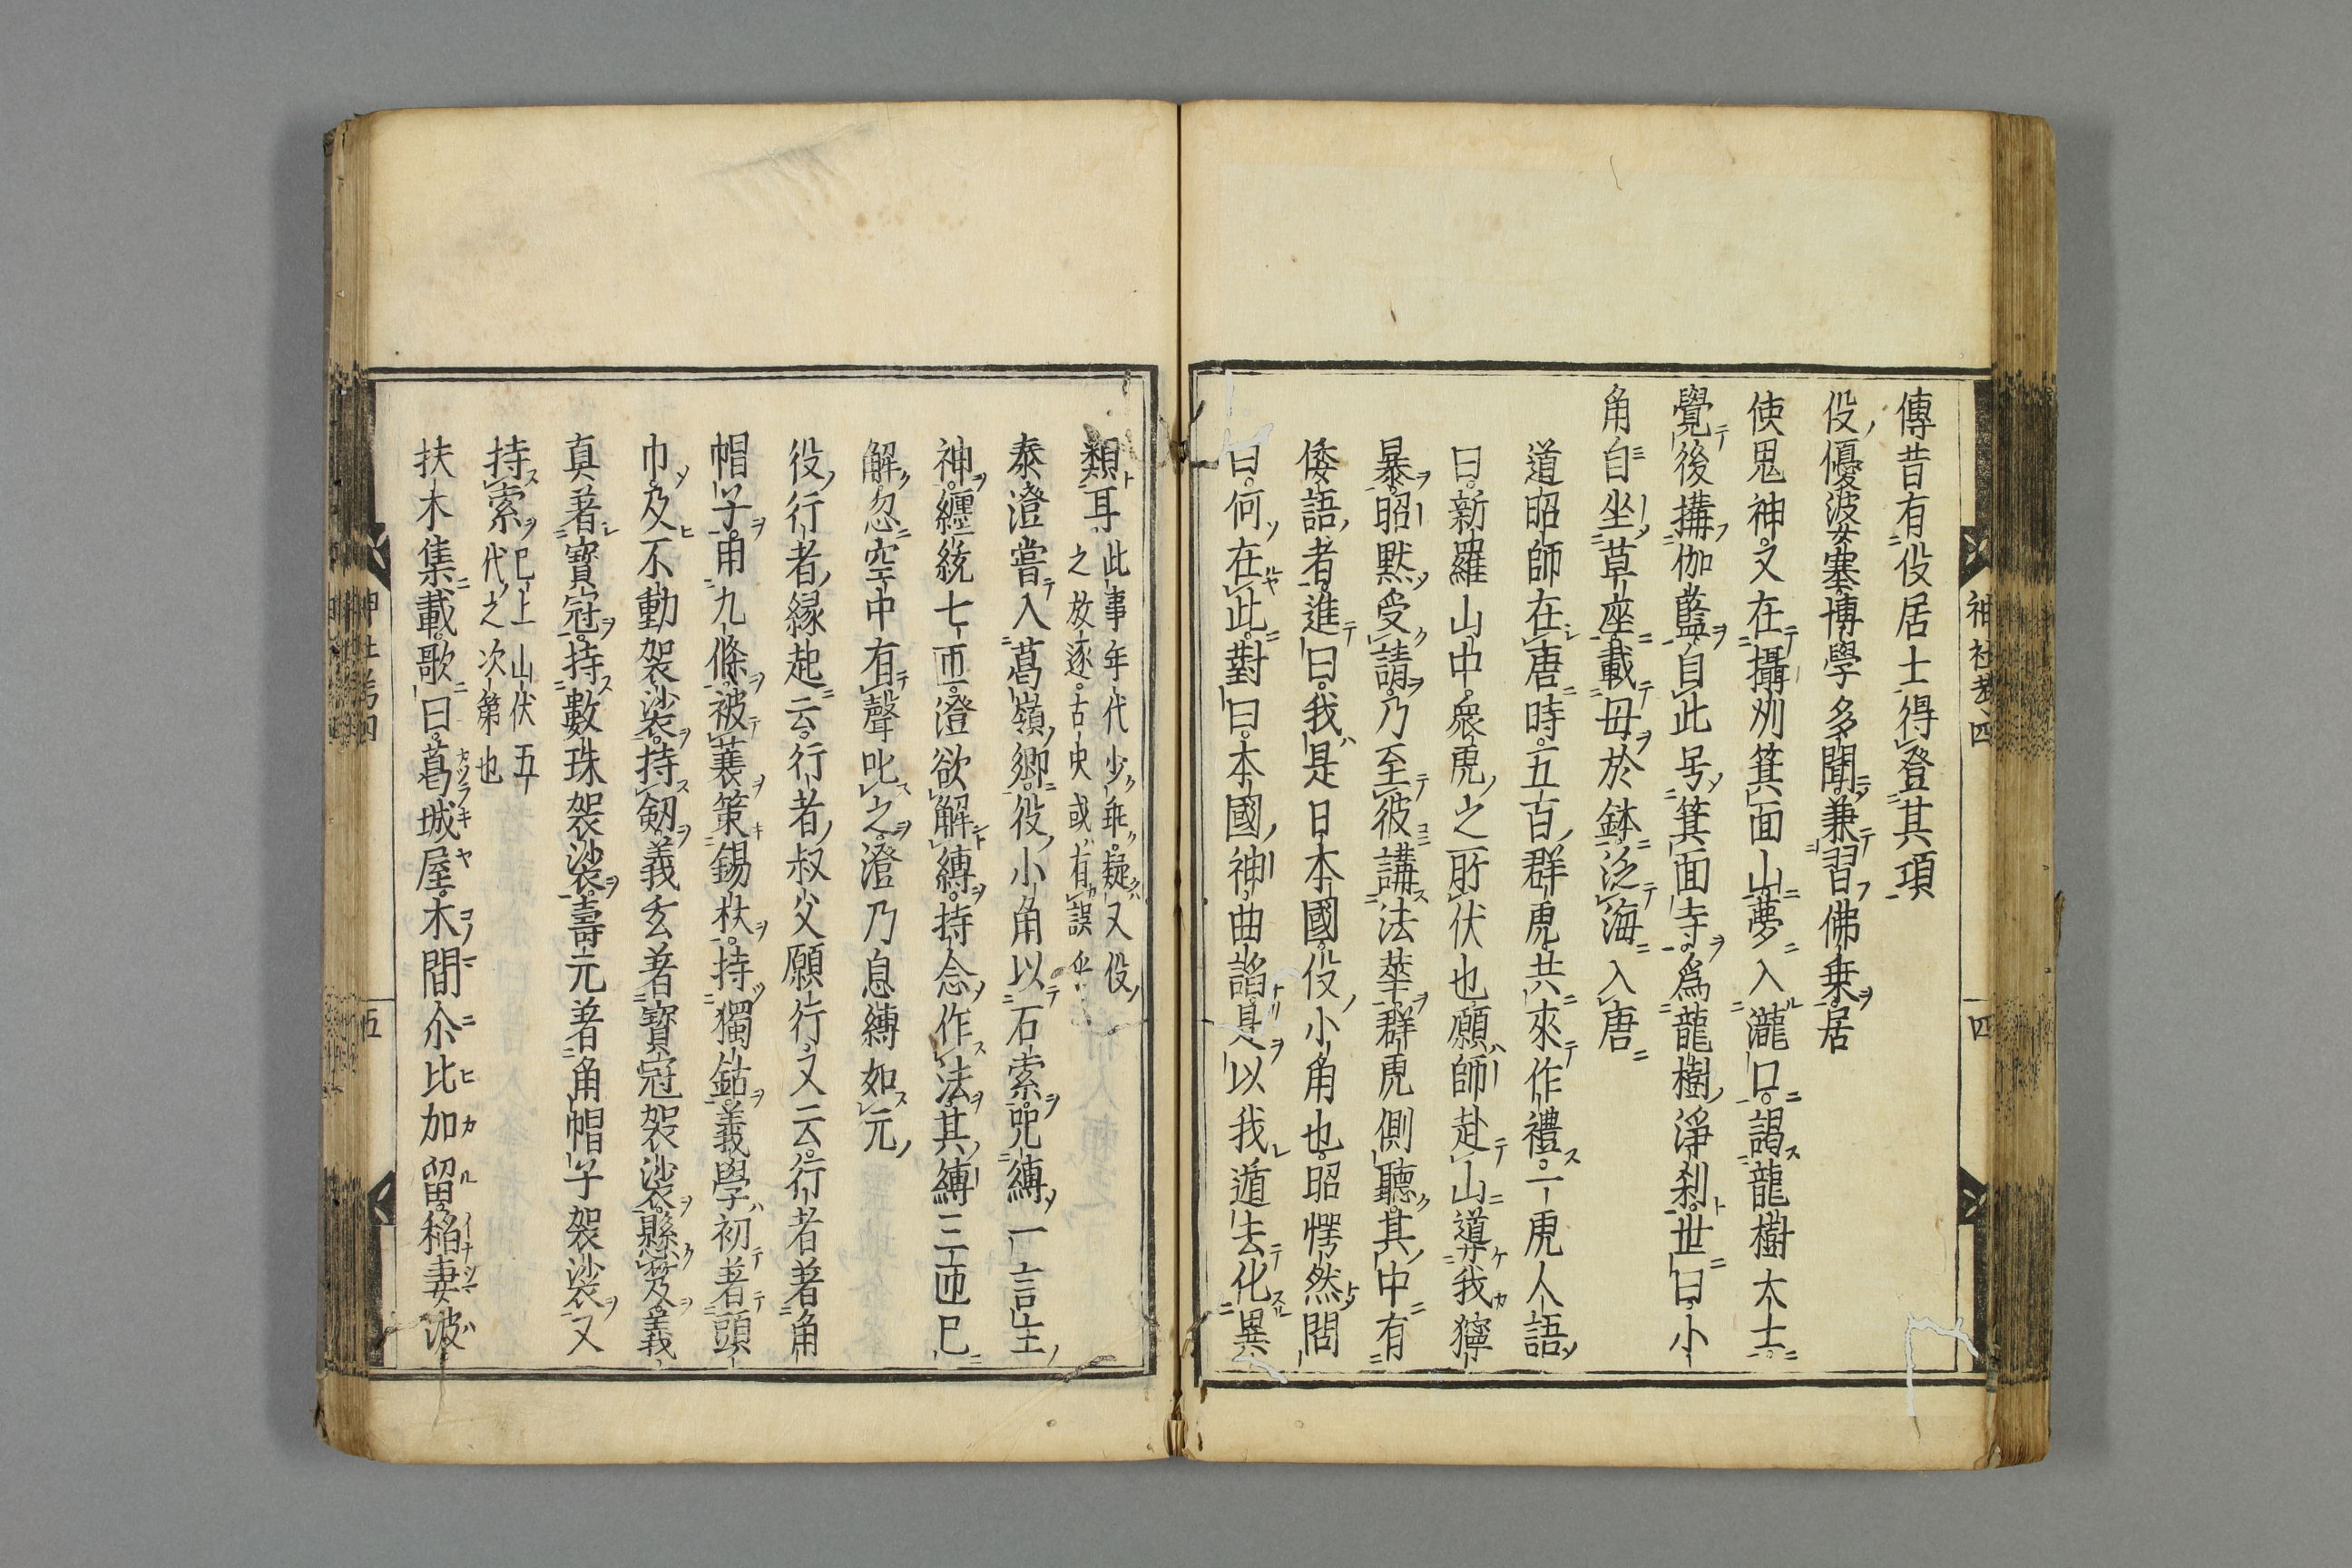 傳昔有役居士得登其項
役優波塞博學多聞兼習佛乗居
使鬼神又在攝州箕面山夢入瀧口謁龍樹大士
覺後搆伽藍自此号箕面寺爲龍樹淨刹世曰小
角自坐草座載母於鉢泛海入唐
道昭師在唐時五百群虎共來作禮一虎人語
曰新羅山中衆虎之所伏也願師赴山導我獰
暴昭默受請乃至彼講法華群虎側聽其中有
倭語者進曰我是日本國役小角也昭愕然問
曰何在此對曰本國神曲謟是以我遁去化異
神社考四
四
類耳
此事年代少乖疑又役
之放逐古史或有誤乎
泰澄嘗入葛嶺卿役小角以石索咒縛一言主
神纒統七匝澄欲解縛持念作法其縛三匝已
解忽空中有聲叱之澄乃息縛如元
役行者縁起云行者叔父願行又云行者著角
帽子用九條被蓑策錫杖持獨鈷義學初著頭
巾及不動袈裟持劔義玄著寶冠袈裟懸笈義
真著寶冠持數珠袈裟壽元著角帽子袈裟又
持索
已上山伏五
代之次第也
扶木集載歌曰葛城屋木間尒比加留稻妻波
五